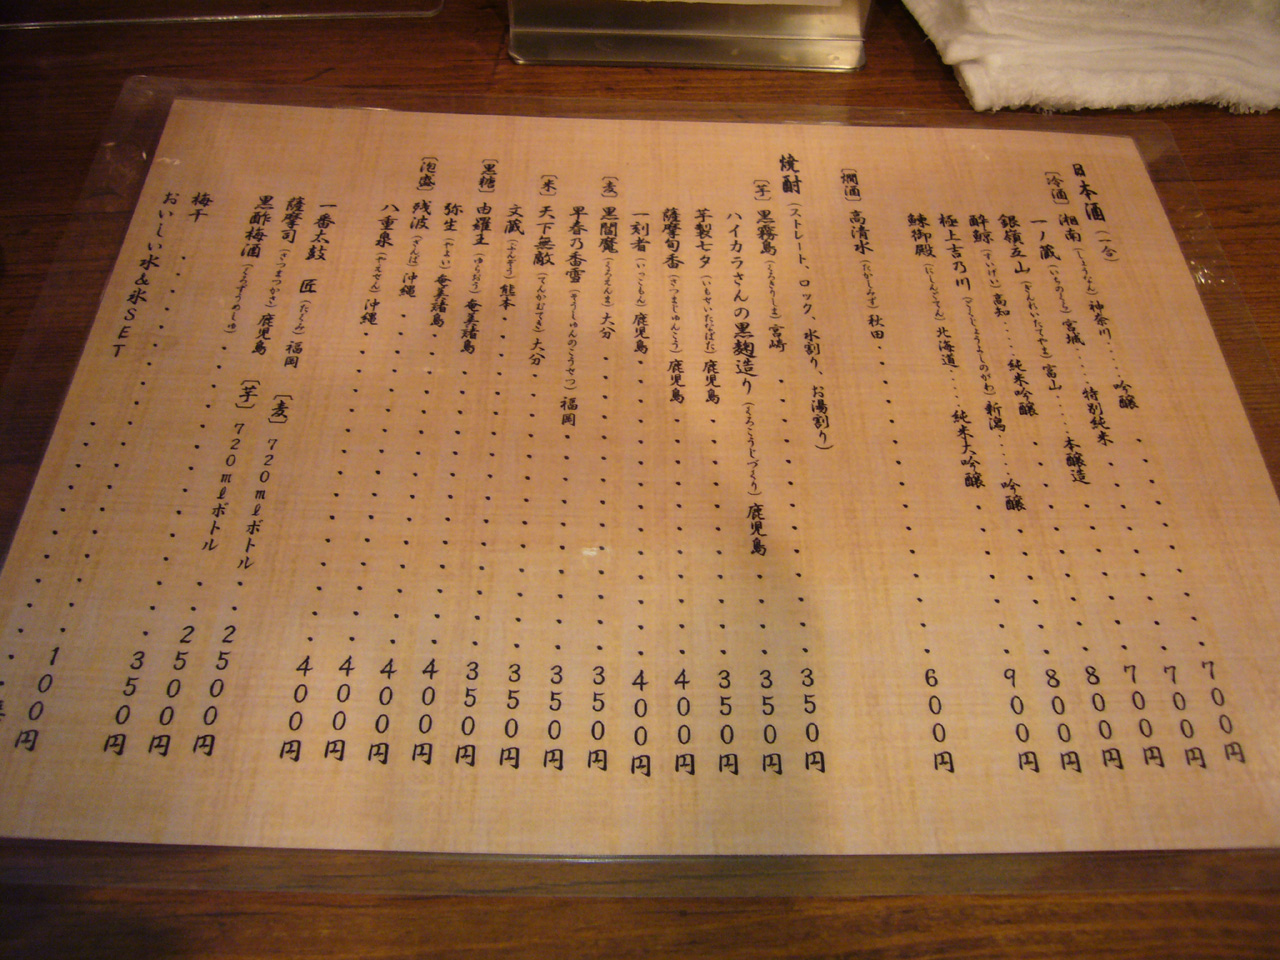 日本酒(一合)
[冷酒] 湘南(しょうなん)神奈川....吟醸........700円
一ノ蔵(いちのくら)宮城....特別純米.......700円
銀嶺立山(ぎんれいたてやま)富山.....本醸造......700円
酔鯨(すいげい)高知....純米吟醸.......800円
極上吉乃川(ごくじょうよしのがわ)新潟.....吟醸.....800円
鰊御殿(にしんごてん)北海道....純米大吟醸.....900円
[燗酒] 高清水(たかしみず)秋田.........600円
焼酎(ストレート、ロック、水割り、お湯割り)
[芋] 黒霧島(くろきりしま)宮崎.........350円
ハイカラさんの黒麹造り(くろこうじづくり)鹿児島...350円
芋製七夕(いもせいたなばた)鹿児島.......350円
薩摩旬香(さつましゅんこう)鹿児島.......400円
一刻者(いっこもん)鹿児島.........400円
[麦] 黒閻魔(くろえんま)大分.........350円
早春乃香雪(そうしゅんのこうせつ)福岡......350円
[米] 天下無敵(てんかむてき)大分........350円
文蔵(ぶんぞう)熊本..........350円
[黒糖] 由羅王(ゆらおう)奄美諸島........400円
弥生(やよい)奄美諸島..........400円
[泡盛] 残波(ざんぱ)沖縄..........400円
八重泉(やえせん)沖縄.........400円
一番太鼓 匠(たくみ)福岡 [麦] 720mℓボトル..2500円
薩摩司(さつまつかさ)鹿児島 [芋] 720mℓボトル..2500円
黒酢梅酒(くろずうめしゅ).........350円
梅干............100円
おいしい水&氷SET.......